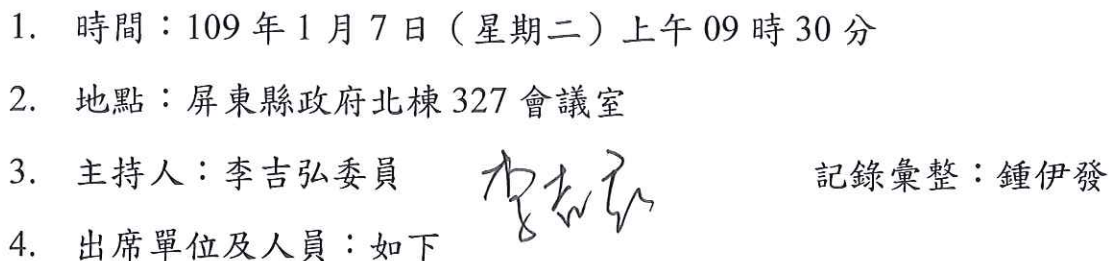 1. 時間：109 年 1 月 7 日（星期二）上午 09 時 30 分
2. 地點：屏東縣政府北棟 327 會議室
3. 主持人：李吉弘委員 李吉弘 記錄彙整：鍾伊發
4. 出席單位及人員：如下